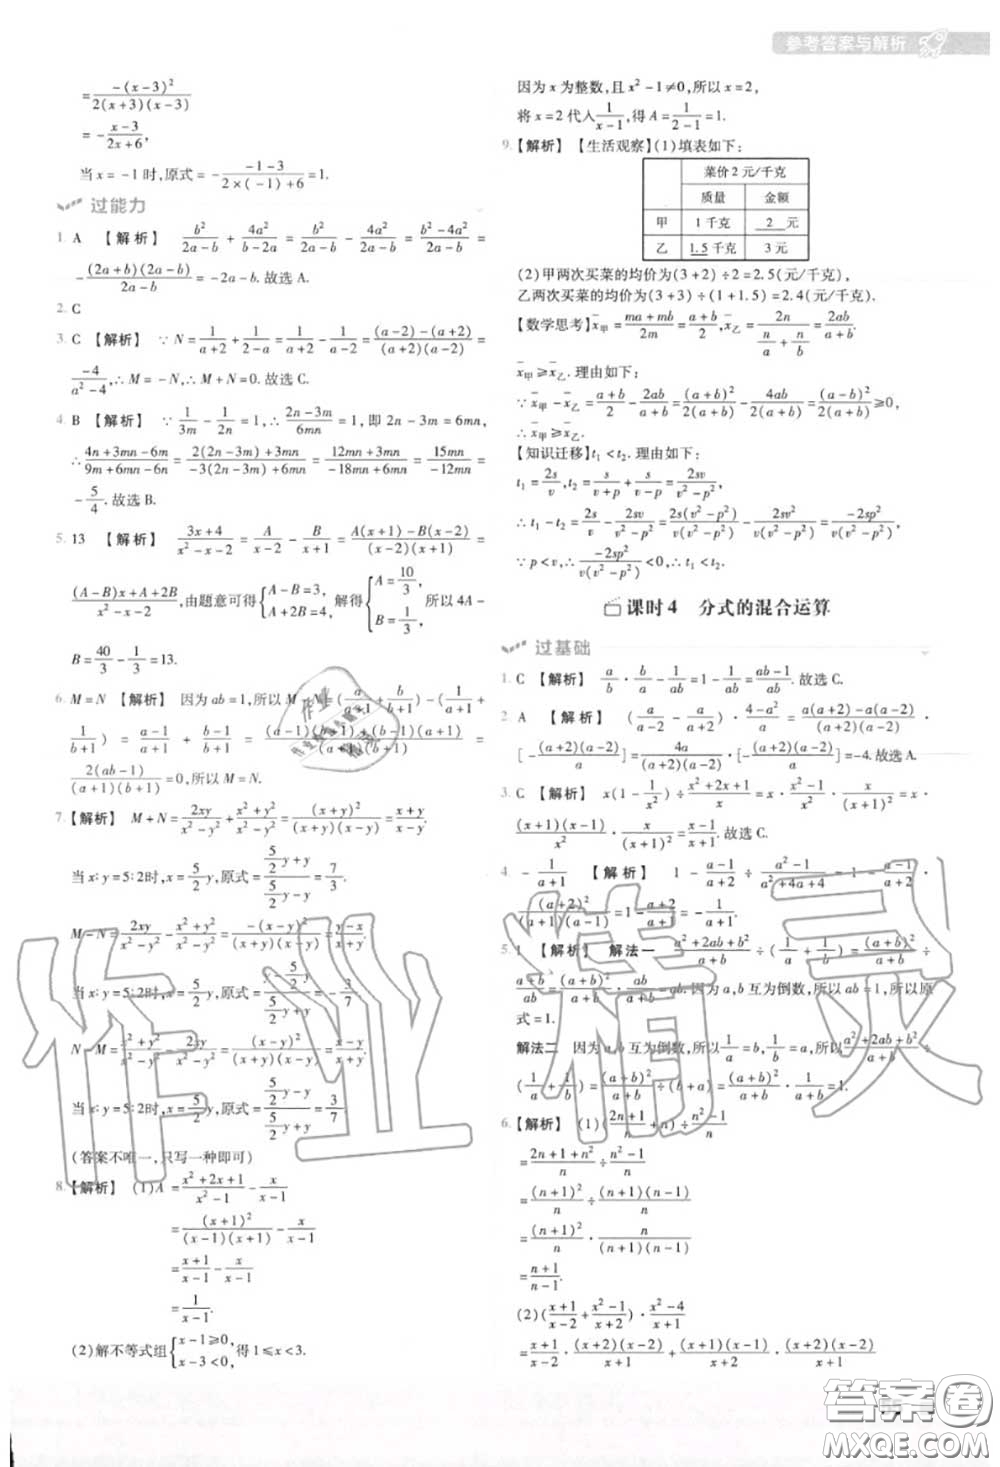 参考答案与解析
= -(x-3)²/2(x+3)(x-3)
= -(x-3)/(2x+6),
当 x = -1 时,原式 = -(-1-3)/(2×(-1)+6) = 1.
过能力
1. A 【解析】 b²/(2a-b) + 4a²/(b-2a) = b²/(2a-b) - 4a²/(2a-b) = (b²-4a²)/(2a-b) =
-(2a+b)(2a-b)/(2a-b) = -2a-b. 故选 A.
2. C
3. C 【解析】 ∵ N = 1/(a+2) + 1/(2-a) = 1/(a+2) - 1/(a-2) = ((a-2)-(a+2))/((a+2)(a-2)) =
-4/(a²-4), ∴ M = -N, ∴ M+N = 0. 故选 C.
4. B 【解析】 ∵ 1/3m - 1/2n = 1, ∴ (2n-3m)/6mn = 1, 即 2n-3m = 6mn,
∴ (4n+3mn-6m)/(9m+6mn-6n) = (2(2n-3m)+3mn)/(-3(2n-3m)+6mn) = (12mn+3mn)/(-18mn+6mn) = 15mn/(-12mn) =
-5/4. 故选 B.
5. 13 【解析】 (3x+4)/(x²-x-2) = A/(x-2) - B/(x+1) = (A(x+1)-B(x-2))/((x-2)(x+1)) =
((A-B)x+A+2B)/(x²-x-2), 由题意可得 {A-B=3, A+2B=4, 解得 {A=10/3, B=1/3, 所以 4A-
B = 40/3 - 1/3 = 13.
6. M=N 【解析】 因为 ab=1, 所以 M-N = (a/(a+1) + b/(b+1)) - (1/(a+1) +
1/(b+1)) = (a-1)/(a+1) + (b-1)/(b+1) = ((a-1)(b+1)+(b-1)(a+1))/((a+1)(b+1)) =
2(ab-1)/((a+1)(b+1)) = 0, 所以 M=N.
7.【解析】 M+N = 2xy/(x²-y²) + (x²+y²)/(x²-y²) = (x+y)²/((x+y)(x-y)) = (x+y)/(x-y).
当 x∶y=5∶2时, x = 5/2 y, 原式 = (5/2 y+y)/(5/2 y-y) = 7/3.
M-N = 2xy/(x²-y²) - (x²+y²)/(x²-y²) = -(x-y)²/((x+y)(x-y)) = -(x-y)/(x+y).
当 x∶y=5∶2时, x = 5/2 y, 原式 = -(5/2 y-y)/(5/2 y+y) = -3/7.
N-M = (x²+y²)/(x²-y²) - 2xy/(x²-y²) = (x-y)²/((x+y)(x-y)) = (x-y)/(x+y).
当 x∶y=5∶2时, x = 5/2 y, 原式 = (5/2 y-y)/(5/2 y+y) = 3/7.
(答案不唯一,只写一种即可)
8.【解析】 (1)A = (x²+2x+1)/(x²-1) - x/(x-1)
= (x+1)²/((x-1)(x+1)) - x/(x-1)
= (x+1)/(x-1) - x/(x-1)
= 1/(x-1).
(2)解不等式组 {x-1≥0, x-3<0, 得 1≤x<3.
因为 x 为整数,且 x²-1≠0,所以 x=2,
将 x=2 代入 1/(x-1), 得 A = 1/(2-1) = 1.
9.【解析】【生活观察】(1)填表如下:
菜价 2 元/千克
质量 金额
甲 1 千克 2 元
乙 1.5 千克 3 元
(2)甲两次买菜的均价为(3+2)÷2=2.5(元/千克),
乙两次买菜的均价为(3+3)÷(1+1.5)=2.4(元/千克).
【数学思考】x̄甲 = (ma+mb)/2m = (a+b)/2, x̄乙 = 2n/(n/a + n/b) = 2ab/(a+b).
x̄甲≥x̄乙. 理由如下:
∵ x̄甲-x̄乙 = (a+b)/2 - 2ab/(a+b) = (a+b)²/2(a+b) - 4ab/2(a+b) = (a-b)²/2(a+b) ≥ 0,
∴ x̄甲≥x̄乙.
【知识迁移】t₁<t₂. 理由如下:
t₁ = 2s/v, t₂ = s/(v+p) + s/(v-p) = 2sv/(v²-p²),
∴ t₁-t₂ = 2s/v - 2sv/(v²-p²) = 2s(v²-p²)/v(v²-p²) - 2sv²/v(v²-p²) = -2sp²/v(v²-p²).
∵ p<v, ∴ -2sp²/v(v²-p²) < 0, ∴ t₁<t₂.
课时 4 分式的混合运算
过基础
1. C 【解析】 a/b · a/b - 1/a · 1/b = ... 
2 A 【解析】 (a/(a-2) - a/(a+2)) · (4-a²)/a = (a(a+2)-a(a-2))/((a+2)(a-2)) ·
[-(a+2)(a-2)/a] = 4a/((a+2)(a-2)) · [-(a+2)(a-2)/a] = -4. 故选 A.
3. C 【解析】 x(1 - 1/x²) ÷ (x+1)²/x = x · (x²-1)/x² · x/(x+1)² = x ·
(x+1)(x-1)/x² · x/(x+1)² = (x-1)/(x+1). 故选 C.
4 -1/(a+1) 【解析】 1 - (a-1)/(a+2) ÷ (a²-1)/(a²+4a+4) = 1 - (a-1)/(a+2) ·
(a+2)²/((a+1)(a-1)) = 1 - (a+2)/(a+1) = -1/(a+1).
5. 1 【解析】 解法一 (a²+2ab+b²)/(a+b) ÷ (1/a + 1/b) = (a+b)²/(a+b) ÷
(a+b)/ab = (a+b)²/(a+b) · ab/(a+b) = ab. 因为 a,b 互为倒数,所以 ab=1,所以原
式=1.
解法二 因为 a,b 互为倒数,所以 1/a = b, 1/b = a, 所以 (a²+2ab+b²)/(a+b) ÷
(1/a + 1/b) = (a+b)²/(a+b) ÷ (b+a) = (a+b)²/(a+b) · 1/(a+b) = 1.
6.【解析】 (1)((2n+1)/n + n) ÷ (n²-1)/n
= (2n+1+n²)/n ÷ (n²-1)/n
= (n+1)²/n · n/(n²-1)
= (n+1)²/n · n/((n+1)(n-1))
= (n+1)/(n-1).
(2)((x+1)/(x-2) + (x²-1)/(x+2)) · (x²-4)/(x+1)
= (x+1)/(x-2) · (x+2)(x-2)/(x+1) + (x+1)(x-1)/(x+2) · (x+2)(x-2)/(x+1)
作业精灵
答案圈
MXQE.COM